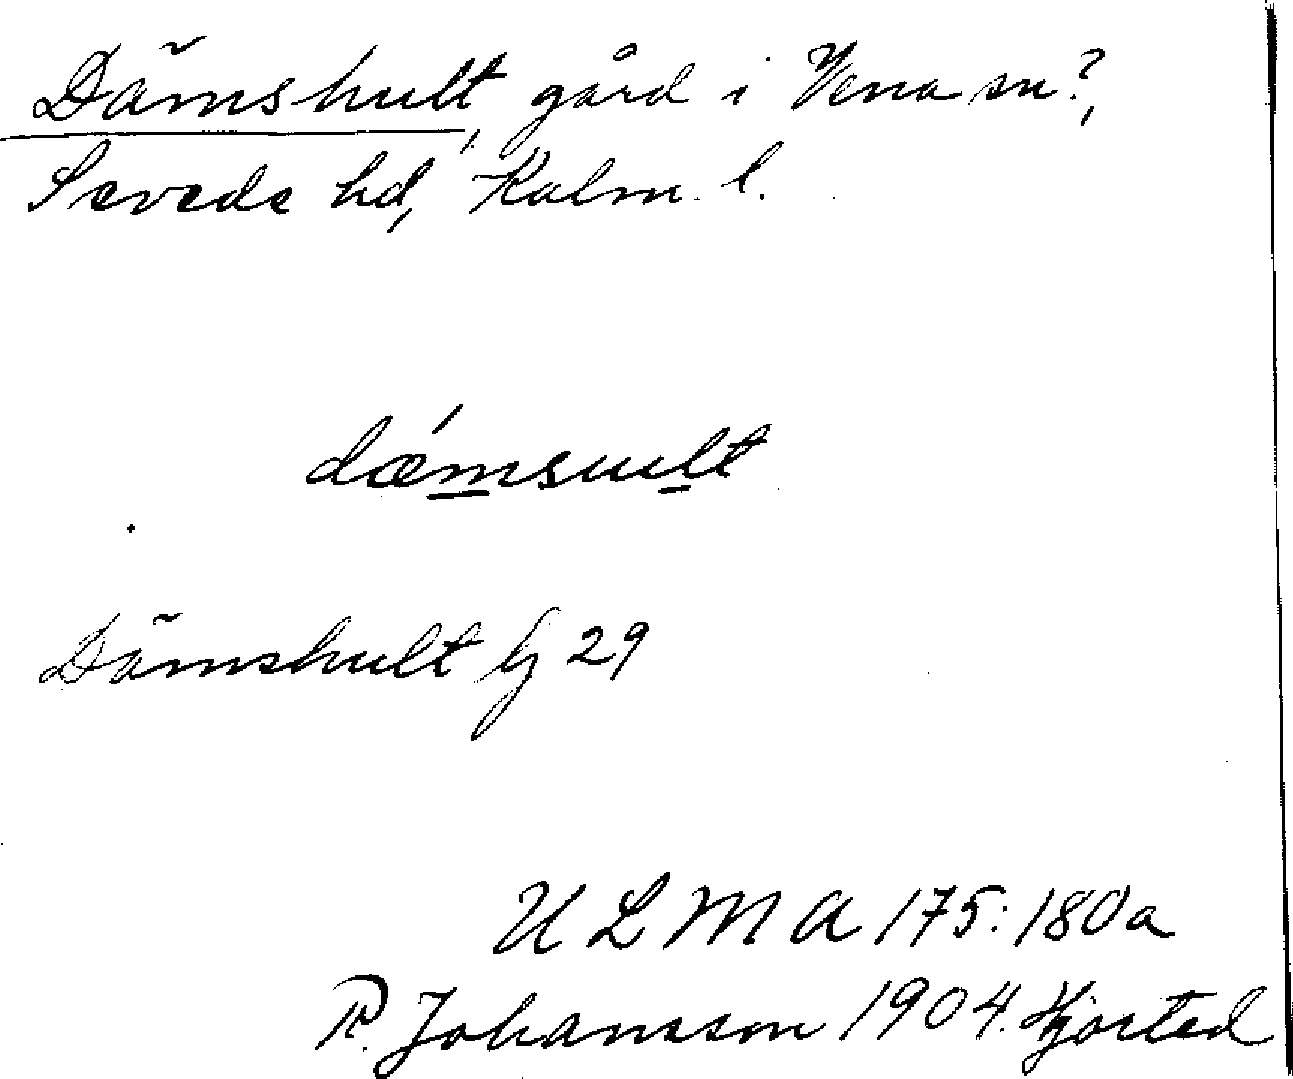 Dämshult, gård i Vena sn?,
Sevede hd, Kalm. l.
dǽmsult
Dämshult bj 29
U L M A 175:180a
R. Johansson 1904. Hjorted